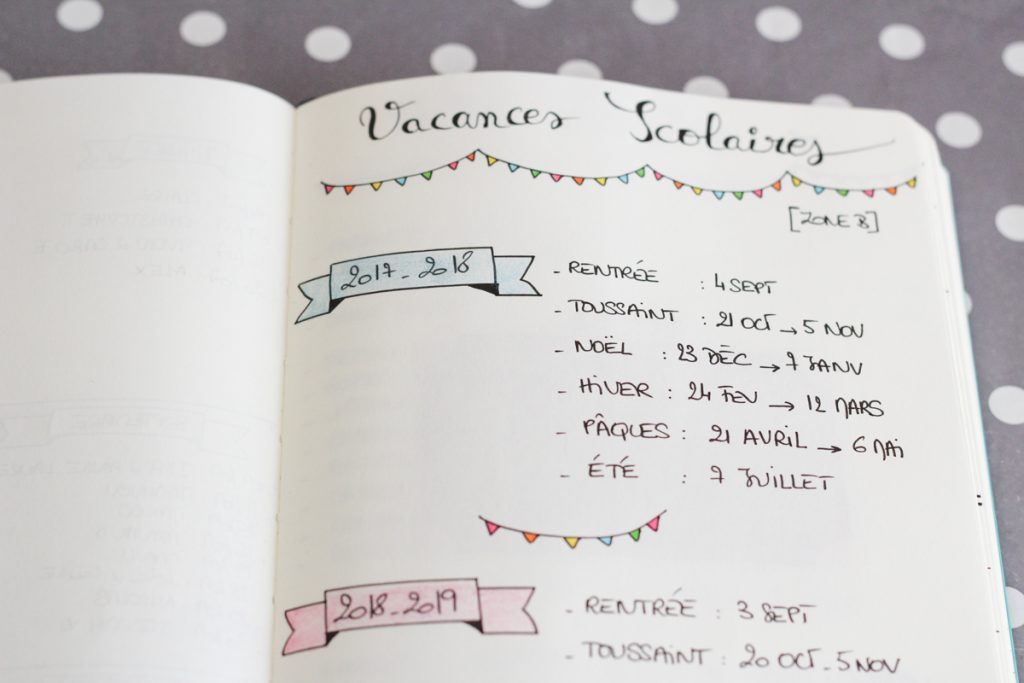 Vacances Scolaires
[ZONE B]
2017-2018
- RENTRÉE : 4 SEPT
- TOUSSAINT : 21 OCT → 5 NOV
- NOËL : 23 DÉC → 7 JANV
- HIVER : 24 FEV → 12 MARS
- PÂQUES : 21 AVRIL → 6 MAI
- ÉTÉ : 7 JUILLET
2018-2019
- RENTRÉE : 3 SEPT
- TOUSSAINT : 20 OCT - 5 NOV